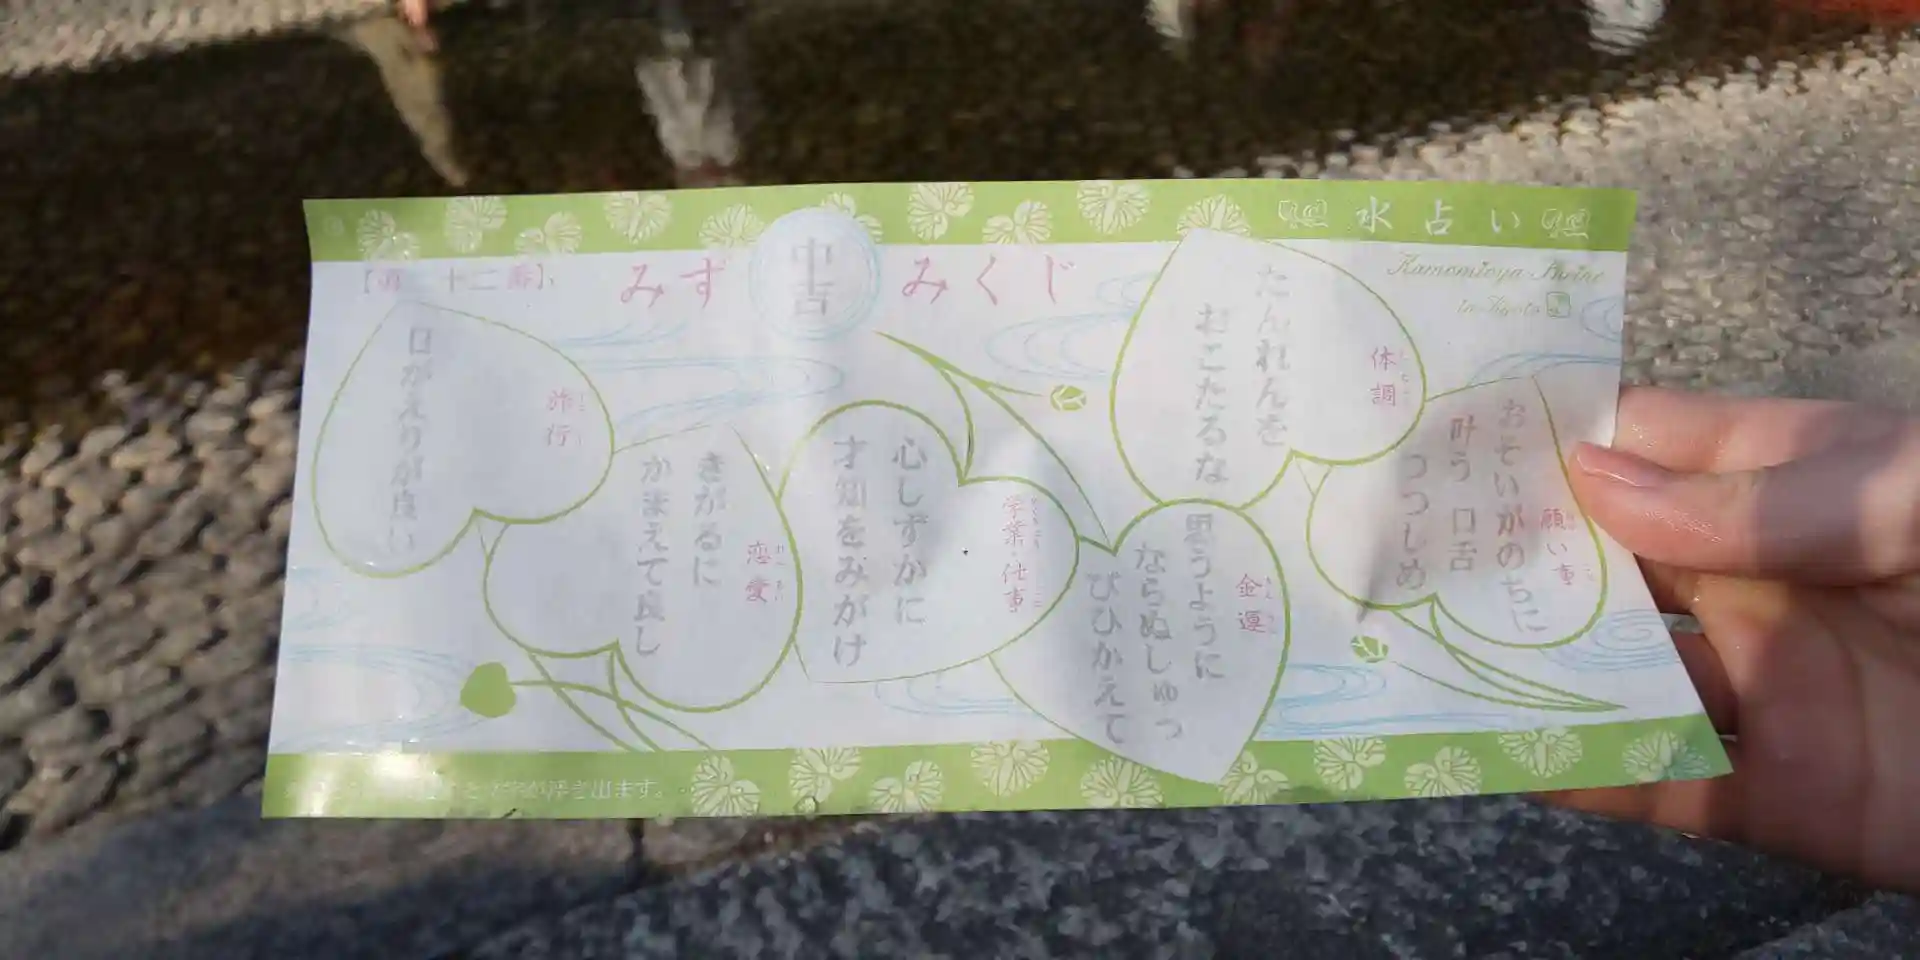 水占い
Kamomioya Shrine
in Kyoto
みず
中吉
みくじ
願い事
おそいがのちに
叶う 口舌
つつしめ
体調
たんれんを
おこたるな
金運
思うように
ならぬしゅっ
ぴひかえて
学業・仕事
心しずかに
才知をみがけ
恋愛
きがるに
かまえて良し
旅行
日がえりが良い
字が浮き出ます。